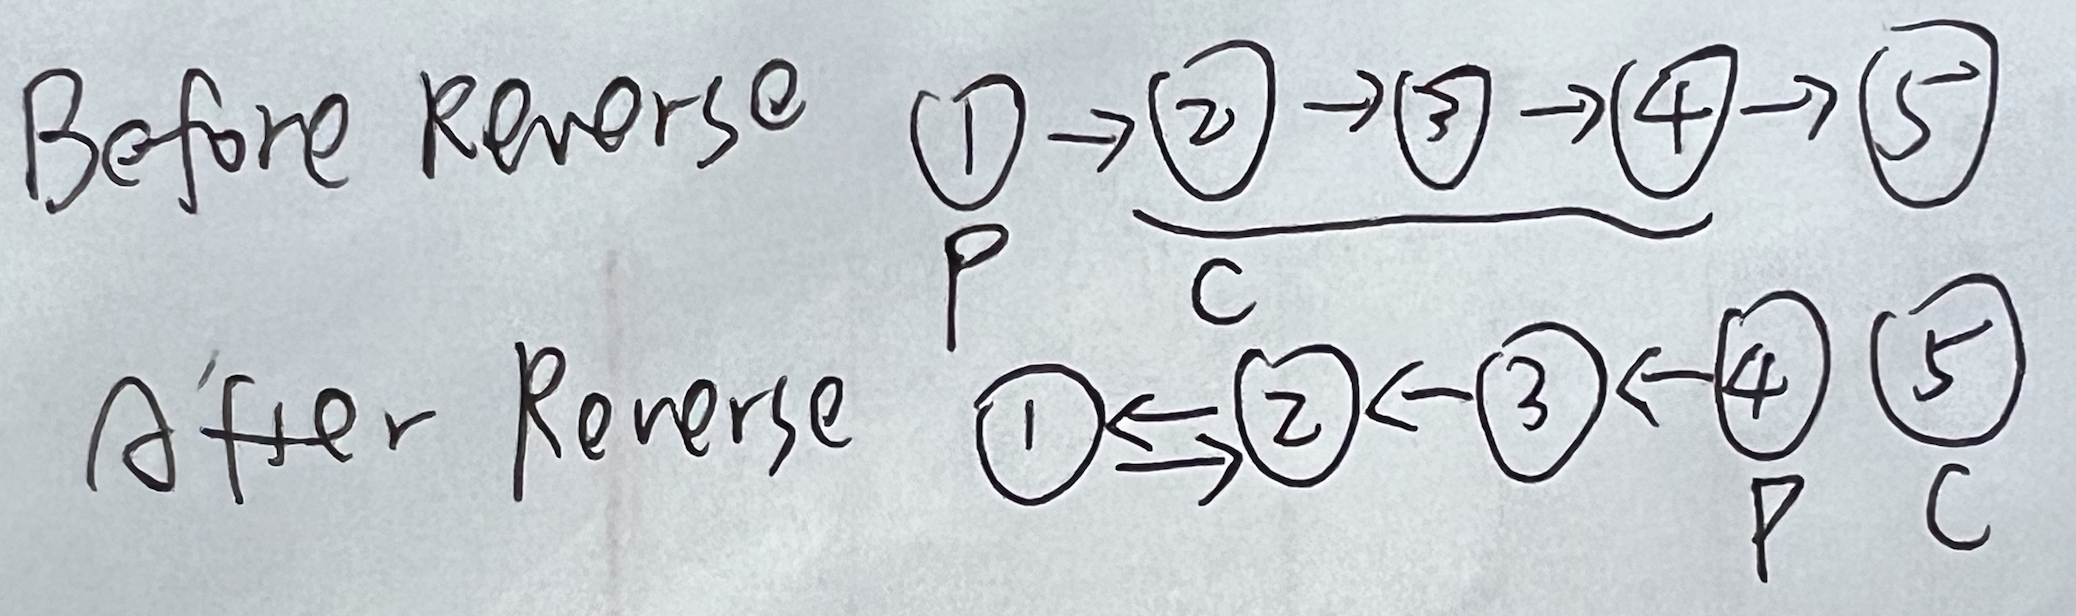 Before Reverse 1 → 2 → 3 → 4 → 5
P C
After Reverse 1 ⇄ 2 ← 3 ← 4 5
P C